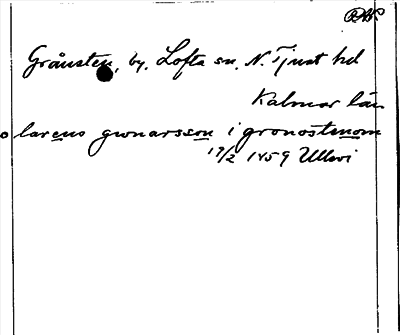 RAP
Grånsten, by. Lofta sn. N. Tjust hd
Kalmar län
o larens gwnarsson i gronostenom
17/2 1459 Ullevi